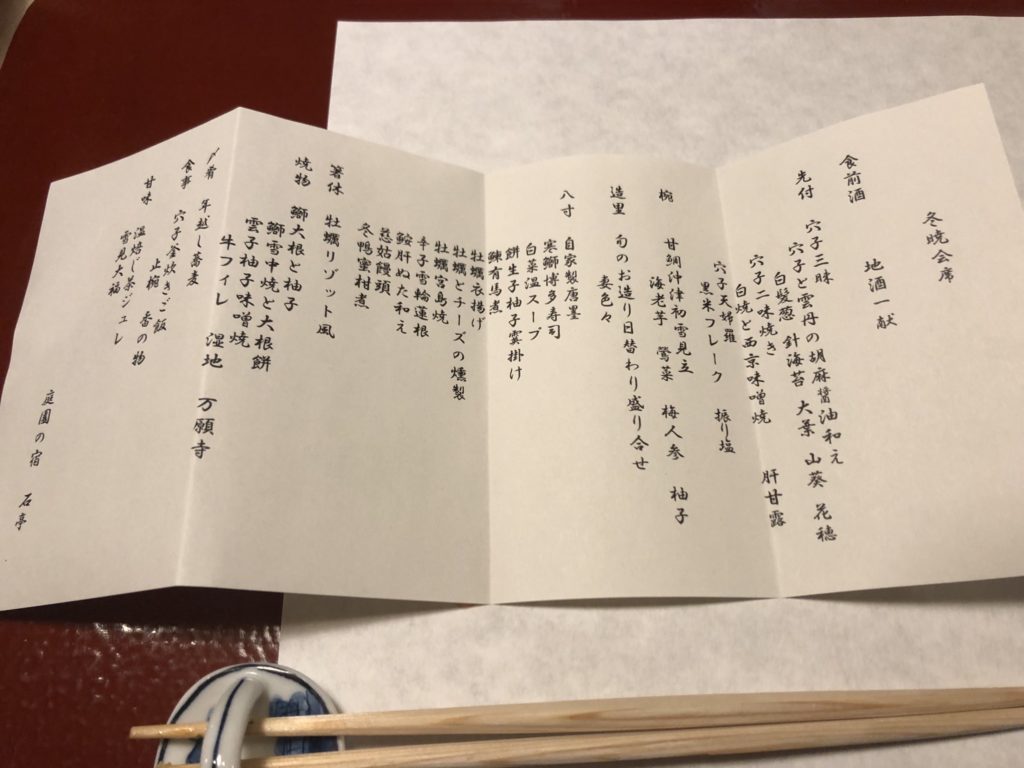 冬暁会席
食前酒 地酒一献
先付 穴子三昧
穴子と雲丹の胡麻醤油和え
白髪葱 針海苔 大葉 山葵 花穂
穴子二味焼き 肝甘露
白焼と西京味噌焼
穴子天婦羅 振り塩
黒米フレーク
椀 甘鯛沖津初雪見立
海老芋 鶯菜 梅人参 柚子
造里 旬のお造り日替わり盛り合せ
妻色々
八寸 自家製唐墨
寒鰤博多寿司
白菜温スープ
餅生子柚子霙掛け
鰊有馬煮
牡蠣衣揚げ
牡蠣とチーズの燻製
牡蠣宮島焼
辛子雪輪蓮根
鮟肝ぬた和え
慈姑饅頭
冬鴨蜜柑煮
箸休 牡蠣リゾット風
焼物 鰤大根と柚子
鰤雪中焼と大根餅
雲子柚子味噌焼
牛フィレ 湿地 万願寺
〆肴 年越し蕎麦
食事 穴子釜炊きご飯
止椀 香の物
甘味 温焙じ茶ジュレ
雪見大福
庭園の宿 石亭